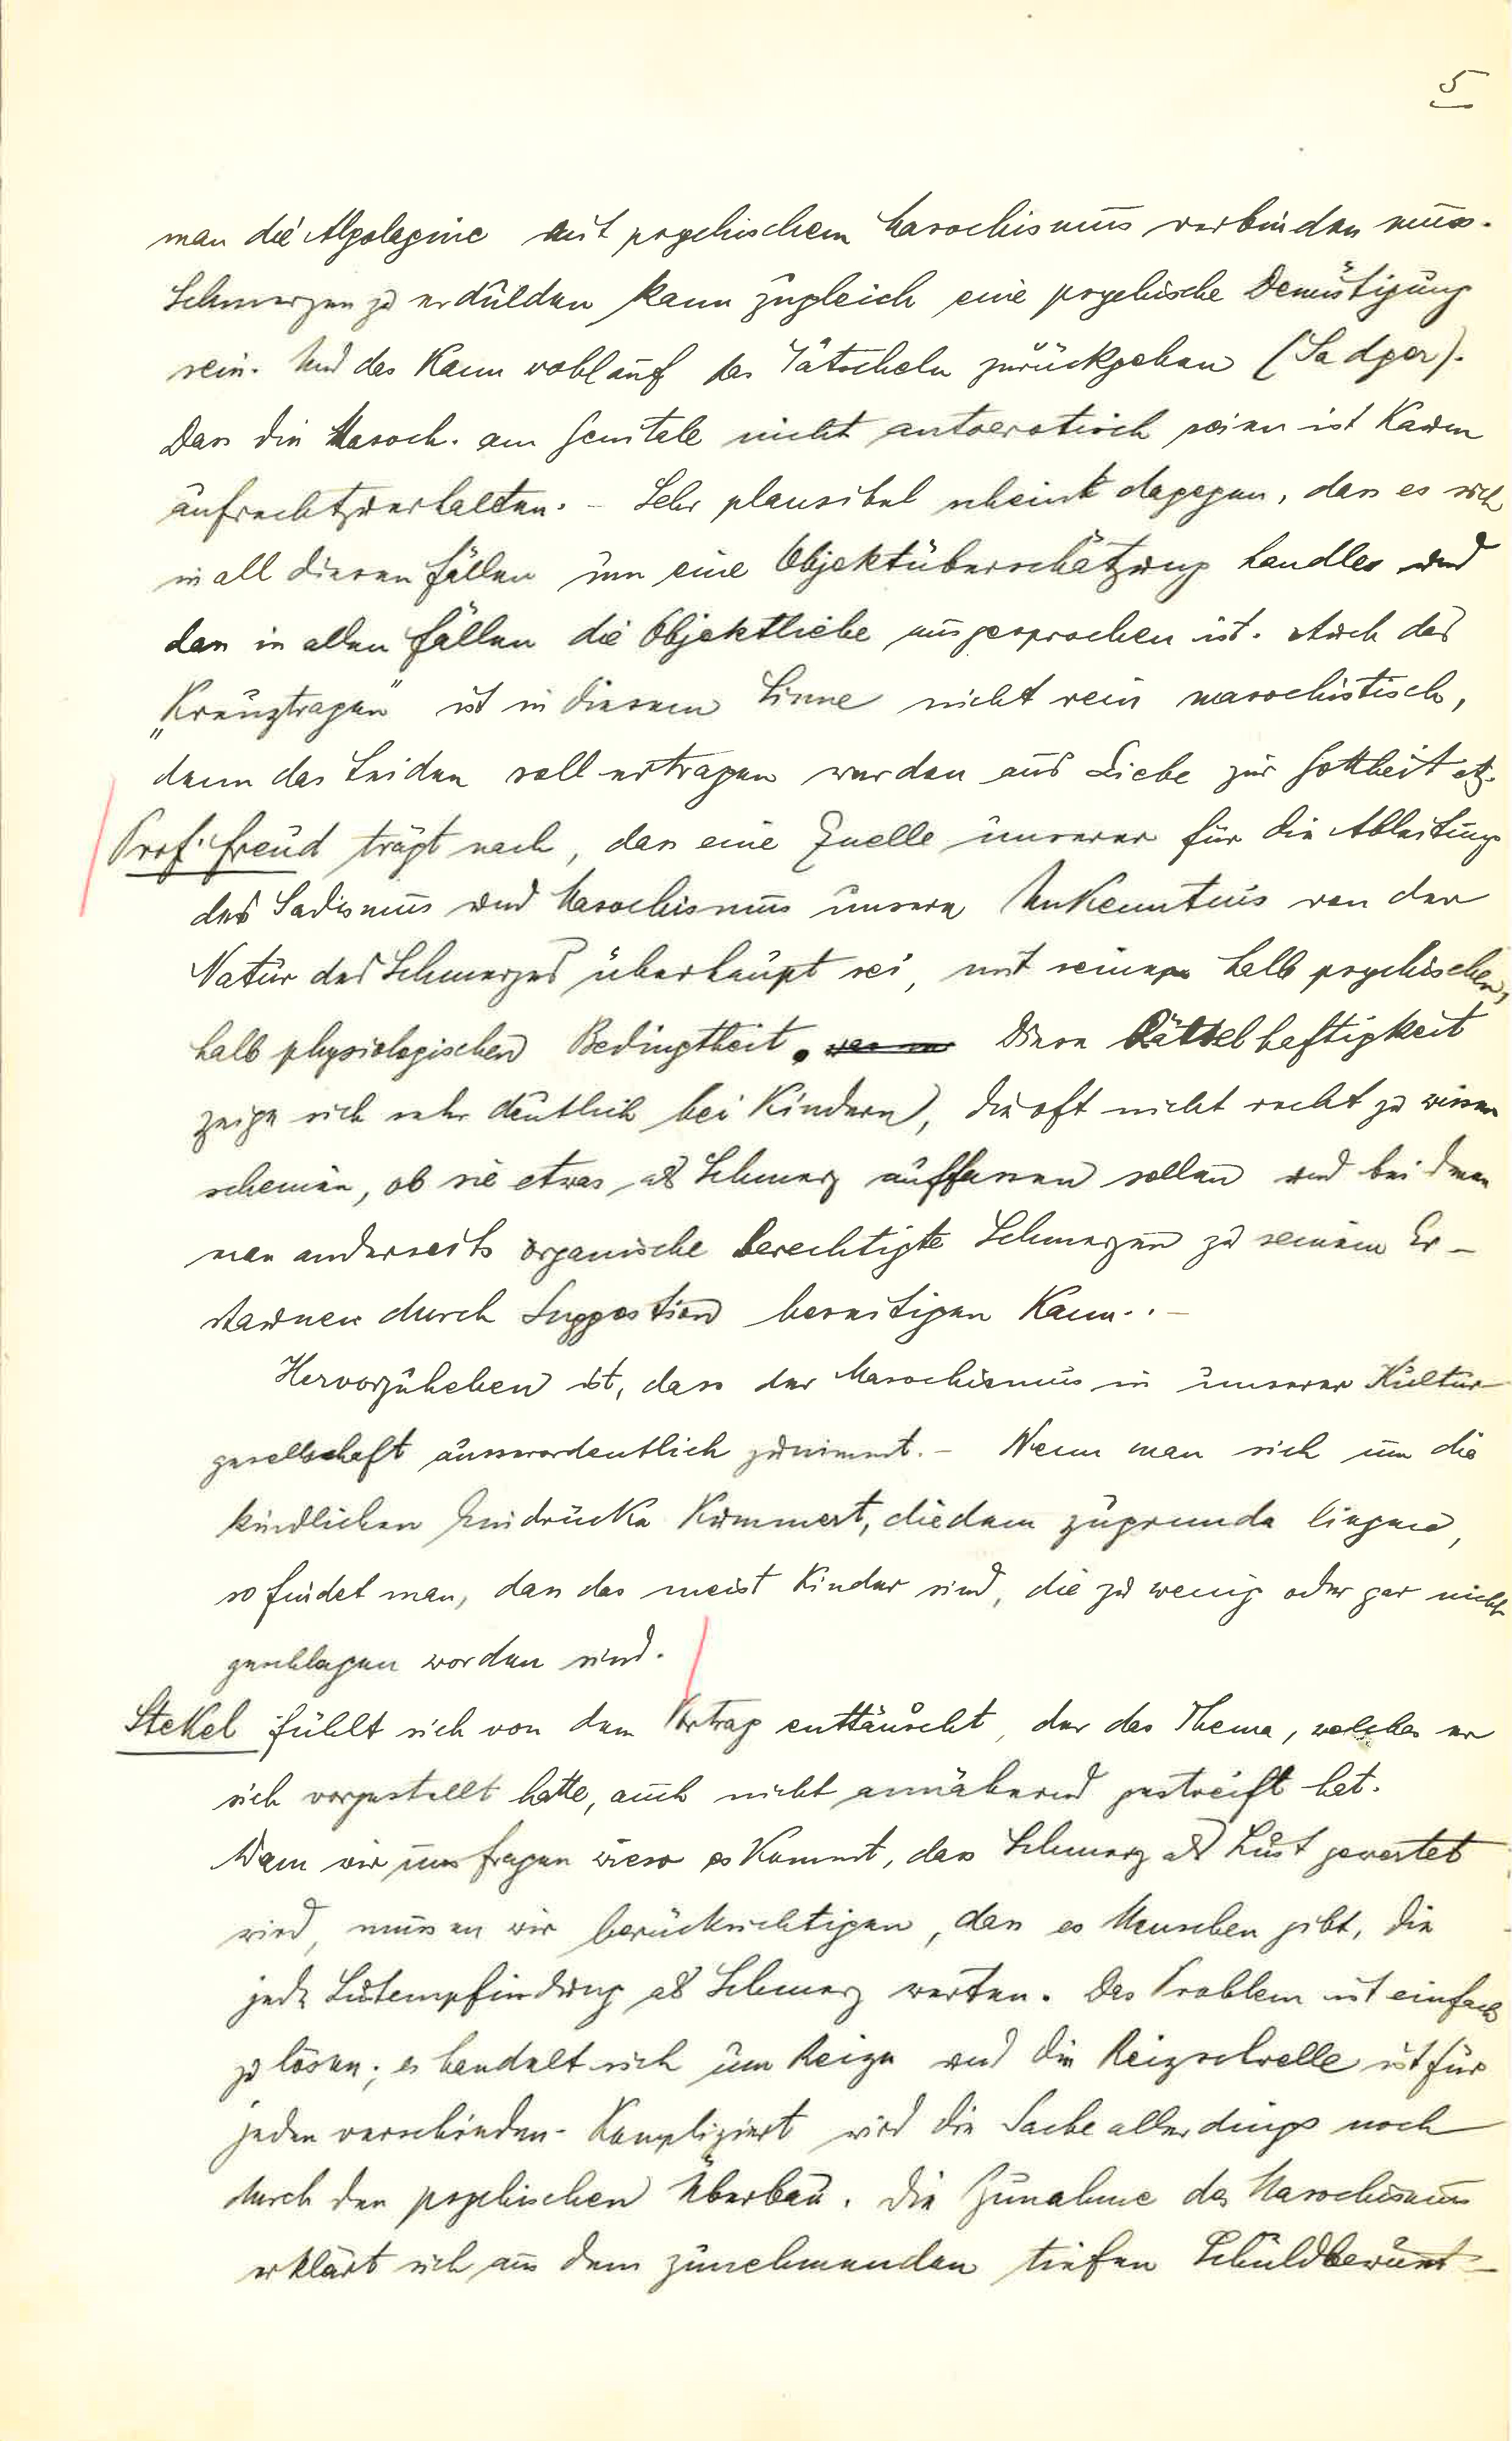 5
man die Algolagnie mit psychischem Masochismus verbinden muss.
Schmerzen zu erdulden kann zugleich eine psychische Demütigung
sein. Und das kann wohl auf das Tätscheln zurückgehen (Sadger).
Dass die Masoch. am Genitale nicht autoerotisch seien ist kaum
aufrechtzuerhalten. – Sehr plausibel scheint dagegen, dass es sich
in all diesen Fällen um eine Objektüberschätzung handle und
dass in allen Fällen die Objektliebe ausgesprochen ist. Auch das
„Kreuztragen" ist in diesem Sinne nicht rein masochistisch,
denn das Leiden soll ertragen werden aus Liebe zur Gottheit etz.
Prof. Freud trägt nach, dass eine Quelle unserer für die Ableitung
des Sadismus und Masochismus unsere Unkenntnis von der
Natur des Schmerzes überhaupt sei, mit seiner halb psychischen,
halb physiologischen Bedingtheit. Diese Rätselhaftigkeit
zeige sich sehr deutlich bei Kindern, die oft nicht recht zu wissen
scheinen, ob sie etwas als Schmerz auffassen sollen und bei denen
man anderseits organische berechtigte Schmerzen zu seinem Er-
staunen durch Suggestion beseitigen kann. –
Hervorzuheben ist, dass der Masochismus in unserer Kultur-
gesellschaft ausserordentlich zunimmt. – Wenn man sich um die
kindlichen Eindrücke kümmert, die dem zugrunde liegen,
so findet man, dass das meist Kinder sind, die zu wenig oder gar nicht
geschlagen worden sind.
Stekel fühlt sich von dem Vortrag enttäuscht, der das Thema, welches er
sich vorgestellt hatte, auch nicht annähernd gestreift hat.
Wenn wir uns fragen wieso es kommt, dass Schmerz als Lust gewertet
wird, müssen wir berücksichtigen, dass es Menschen gibt, die
jede Lustempfindung als Schmerz werten. Das Problem ist einfach
zu lösen; es handelt sich um Reize und die Reizschwelle ist für
jeden verschieden. Kompliziert wird die Sache allerdings noch
durch den psychischen Überbau. Die Zunahme des Masochismus
erklärt sich aus dem zunehmenden tiefen Schuldbewusst-